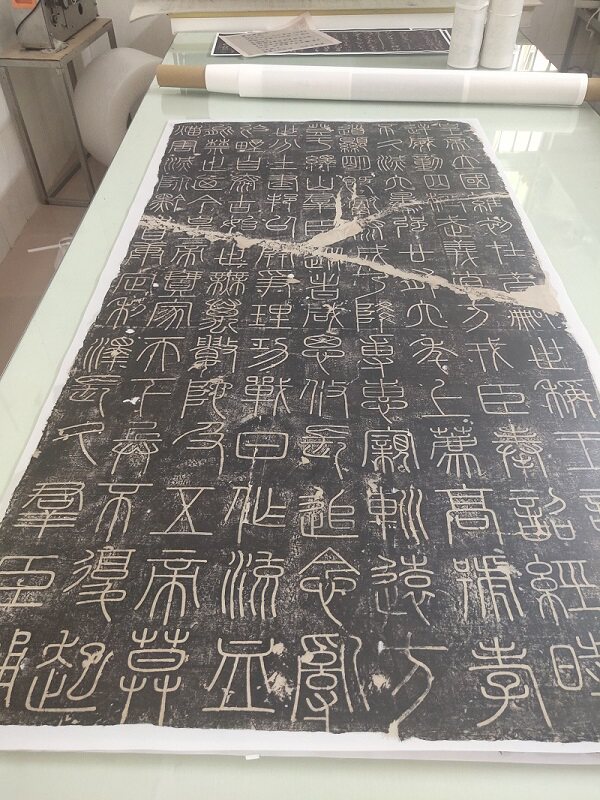 皇帝立國維初在昔嗣世稱王
逆威動四極武義直方戎臣奉詔經時
不久滅六暴強廿有六年上薦高號孝
道顯明既獻泰成乃降尃惠親巡遠方
登于繹山群臣從者咸思攸長追念亂
世分土建邦以開爭理功戰日作流血
於野自泰古始世無萬數陀及五帝莫
能禁止迺今皇帝壹家天下兵不復起
災害滅除黔首康定利澤長久群臣誦